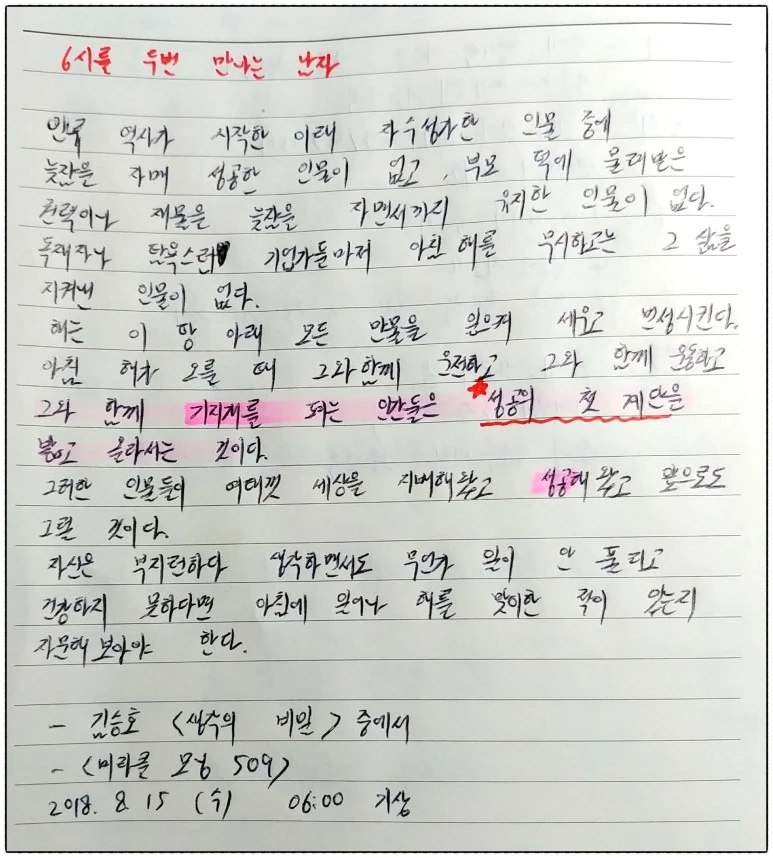 6시를 두번 만나는 남자
인류 역사가 시작한 이래 자수성가한 인물 중에
늦잠을 자며 성공한 인물이 없고, 부모 덕에 물려받은
권력이나 재물을 늦잠을 자면서까지 유지한 인물이 없다.
독재자나 탐욕스러운 기업가들마저 아침 해를 무시하고는 그 삶을
지켜낸 인물이 없다.
해는 이 땅 아래 모든 만물을 일으켜 세우고 번성시킨다.
아침 해가 오를 때 그와 함께 운전하고 그와 함께 운동하고
그와 함께 기지개를 펴는 인간들은 성공의 첫 계단을
밟고 올라서는 것이다.
그러한 인물들이 여태껏 세상을 지배해 왔고 성공해 왔고 앞으로도
그럴 것이다.
자신은 부지런하다 생각하면서도 무언가 일이 안 풀리고
건강하지 못하다면 아침에 일어나 해를 맞이한 적이 있는지
자문해 보아야 한다.
- 김승호 <생각의 비밀> 중에서
- <미라클 모닝 509>
2018. 8. 15 (수) 06:00 기상